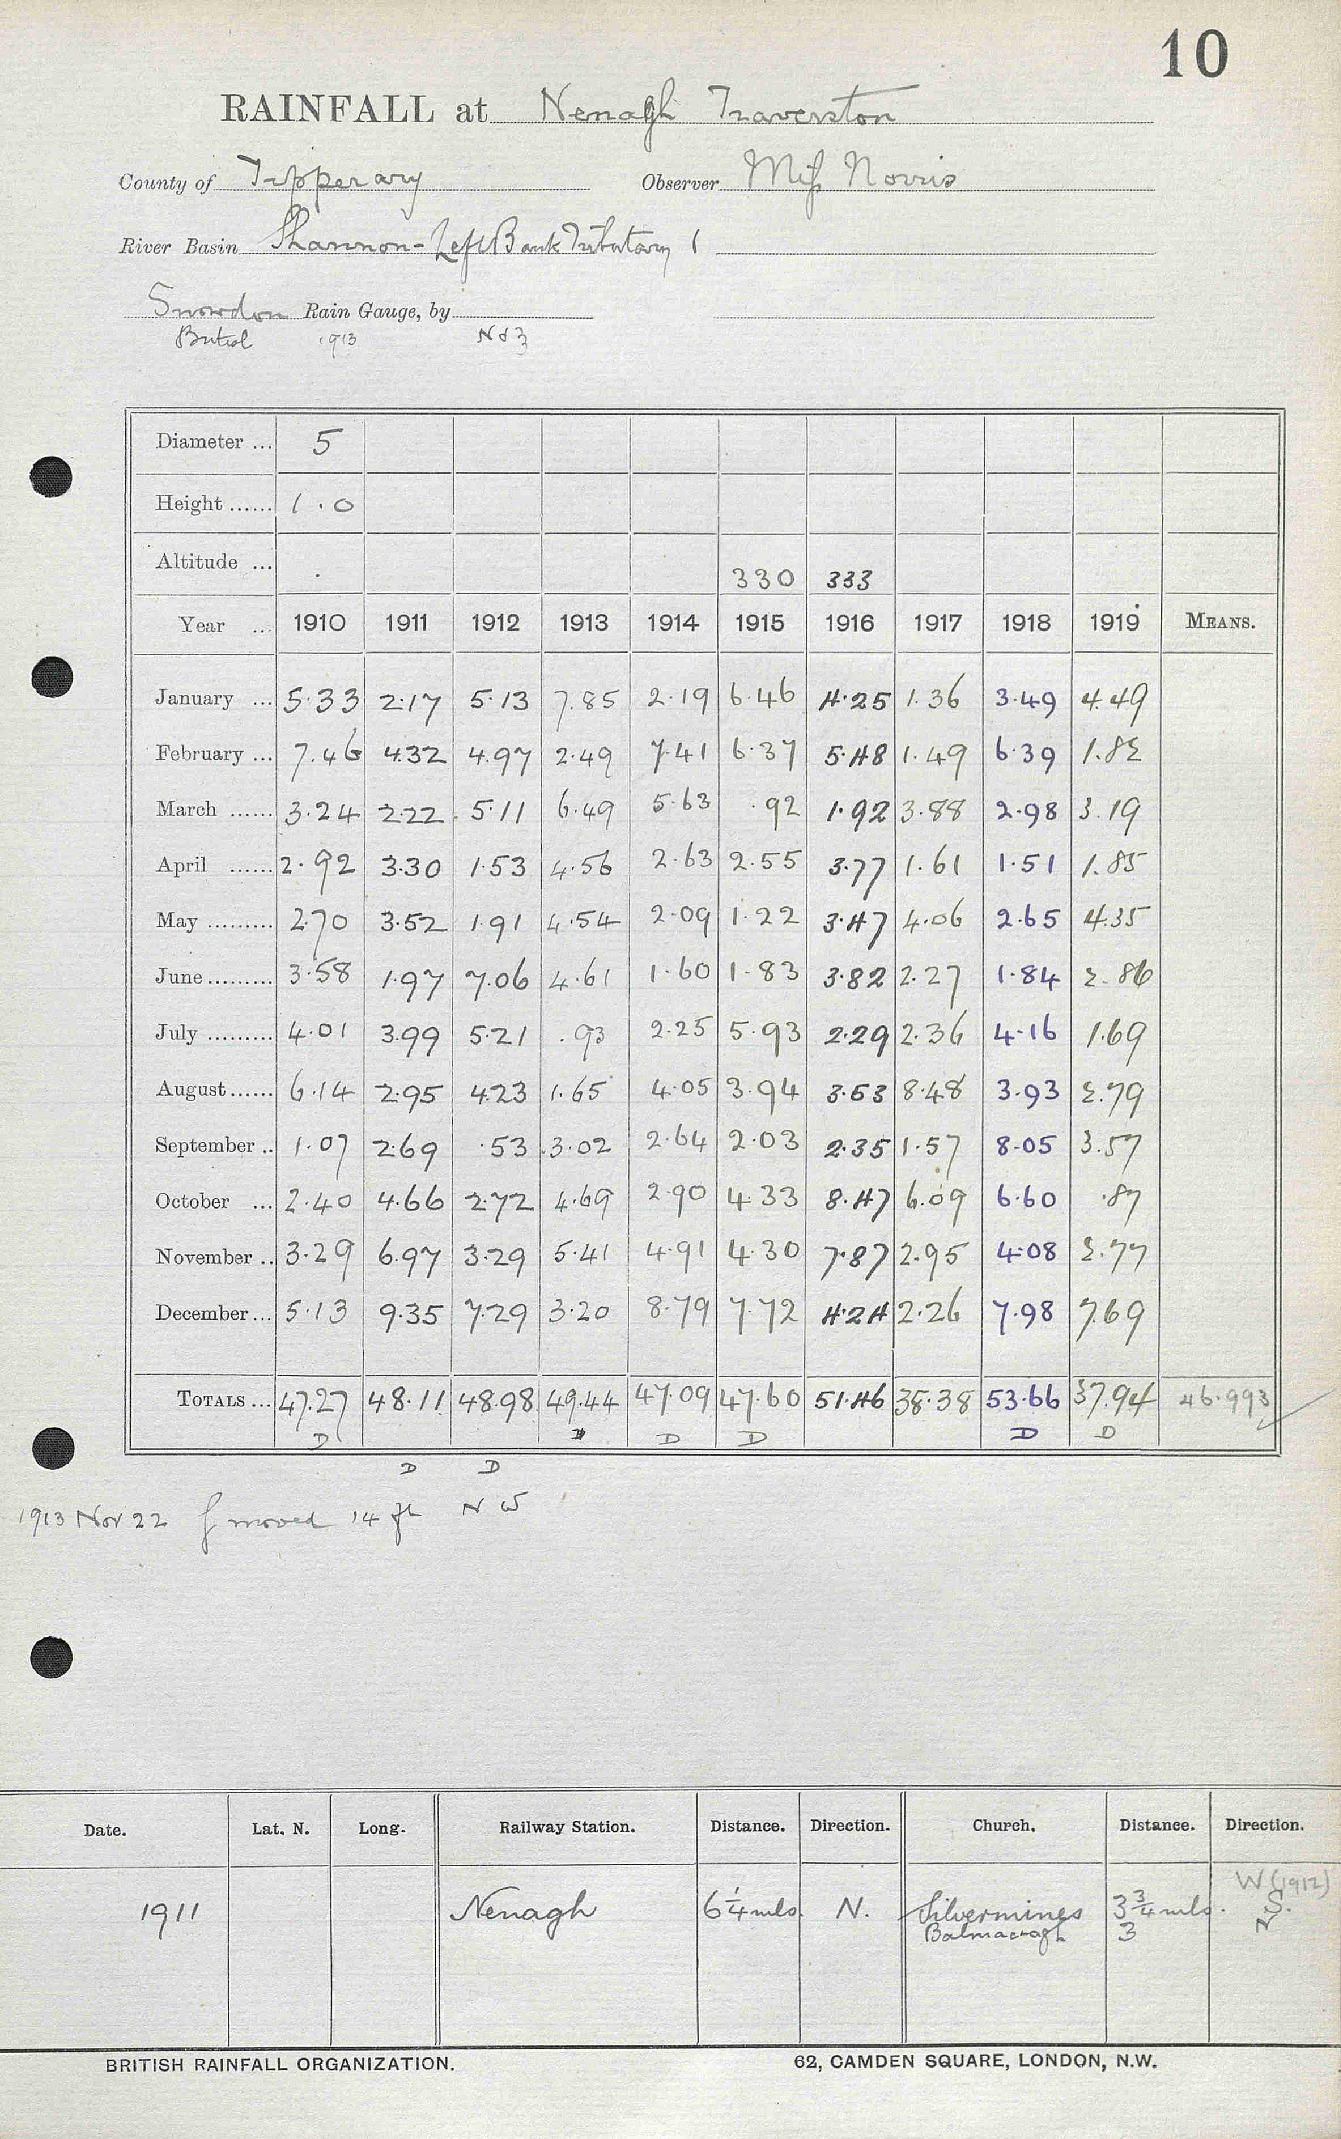 10
RAINFALL at Nenagh Traverston
County of Tipperary Observer Miss Norris
River Basin Shannon-Left Bank Tributary 1
Snowdon Rain Gauge, by
1913 No 3
Diameter ... 5
Height ...... 1.0
Altitude ... 330 333
Year ... 1910 1911 1912 1913 1914 1915 1916 1917 1918 1919 MEANS.
January ... 5.33 2.17 5.13 7.85 2.19 6.46 4.25 1.36 3.49 4.49
February ... 7.46 4.32 4.97 2.49 7.41 6.37 5.48 1.49 6.39 1.82
March ...... 3.24 2.22 5.11 6.49 5.63 .92 1.92 3.88 2.98 3.19
April ...... 2.92 3.30 1.53 4.56 2.63 2.55 3.77 1.61 1.51 1.85
May ......... 2.70 3.52 1.91 4.54 2.09 1.22 3.47 4.06 2.65 4.35
June ......... 3.58 1.97 7.06 4.61 1.60 1.83 3.82 2.27 1.84 2.86
July ......... 4.01 3.99 5.21 .93 2.25 5.93 2.29 2.36 4.16 1.69
August ...... 6.14 2.95 4.23 1.65 4.05 3.94 3.53 8.48 3.93 2.79
September .. 1.07 2.69 .53 3.02 2.64 2.03 2.35 1.57 8.05 3.57
October ... 2.40 4.66 2.72 4.69 2.90 4.33 8.47 6.09 6.60 .87
November .. 3.29 6.97 3.29 5.41 4.91 4.30 7.87 2.95 4.08 2.77
December ... 5.13 9.35 7.29 3.20 8.79 7.72 4.24 2.26 7.98 7.69
TOTALS ... 47.27 48.11 48.98 49.44 47.09 47.60 51.46 38.38 53.66 37.94 46.993
D D D D D D
D D
1913 Nov 22 g moved 14 ft N W
Date. Lat. N. Long. Railway Station. Distance. Direction. Church. Distance. Direction.
W (1912)
1911 Nenagh 6 1/4 mls. N. Silvermines 3 3/4 mls. S.
3 N
BRITISH RAINFALL ORGANIZATION. 62, CAMDEN SQUARE, LONDON, N.W.